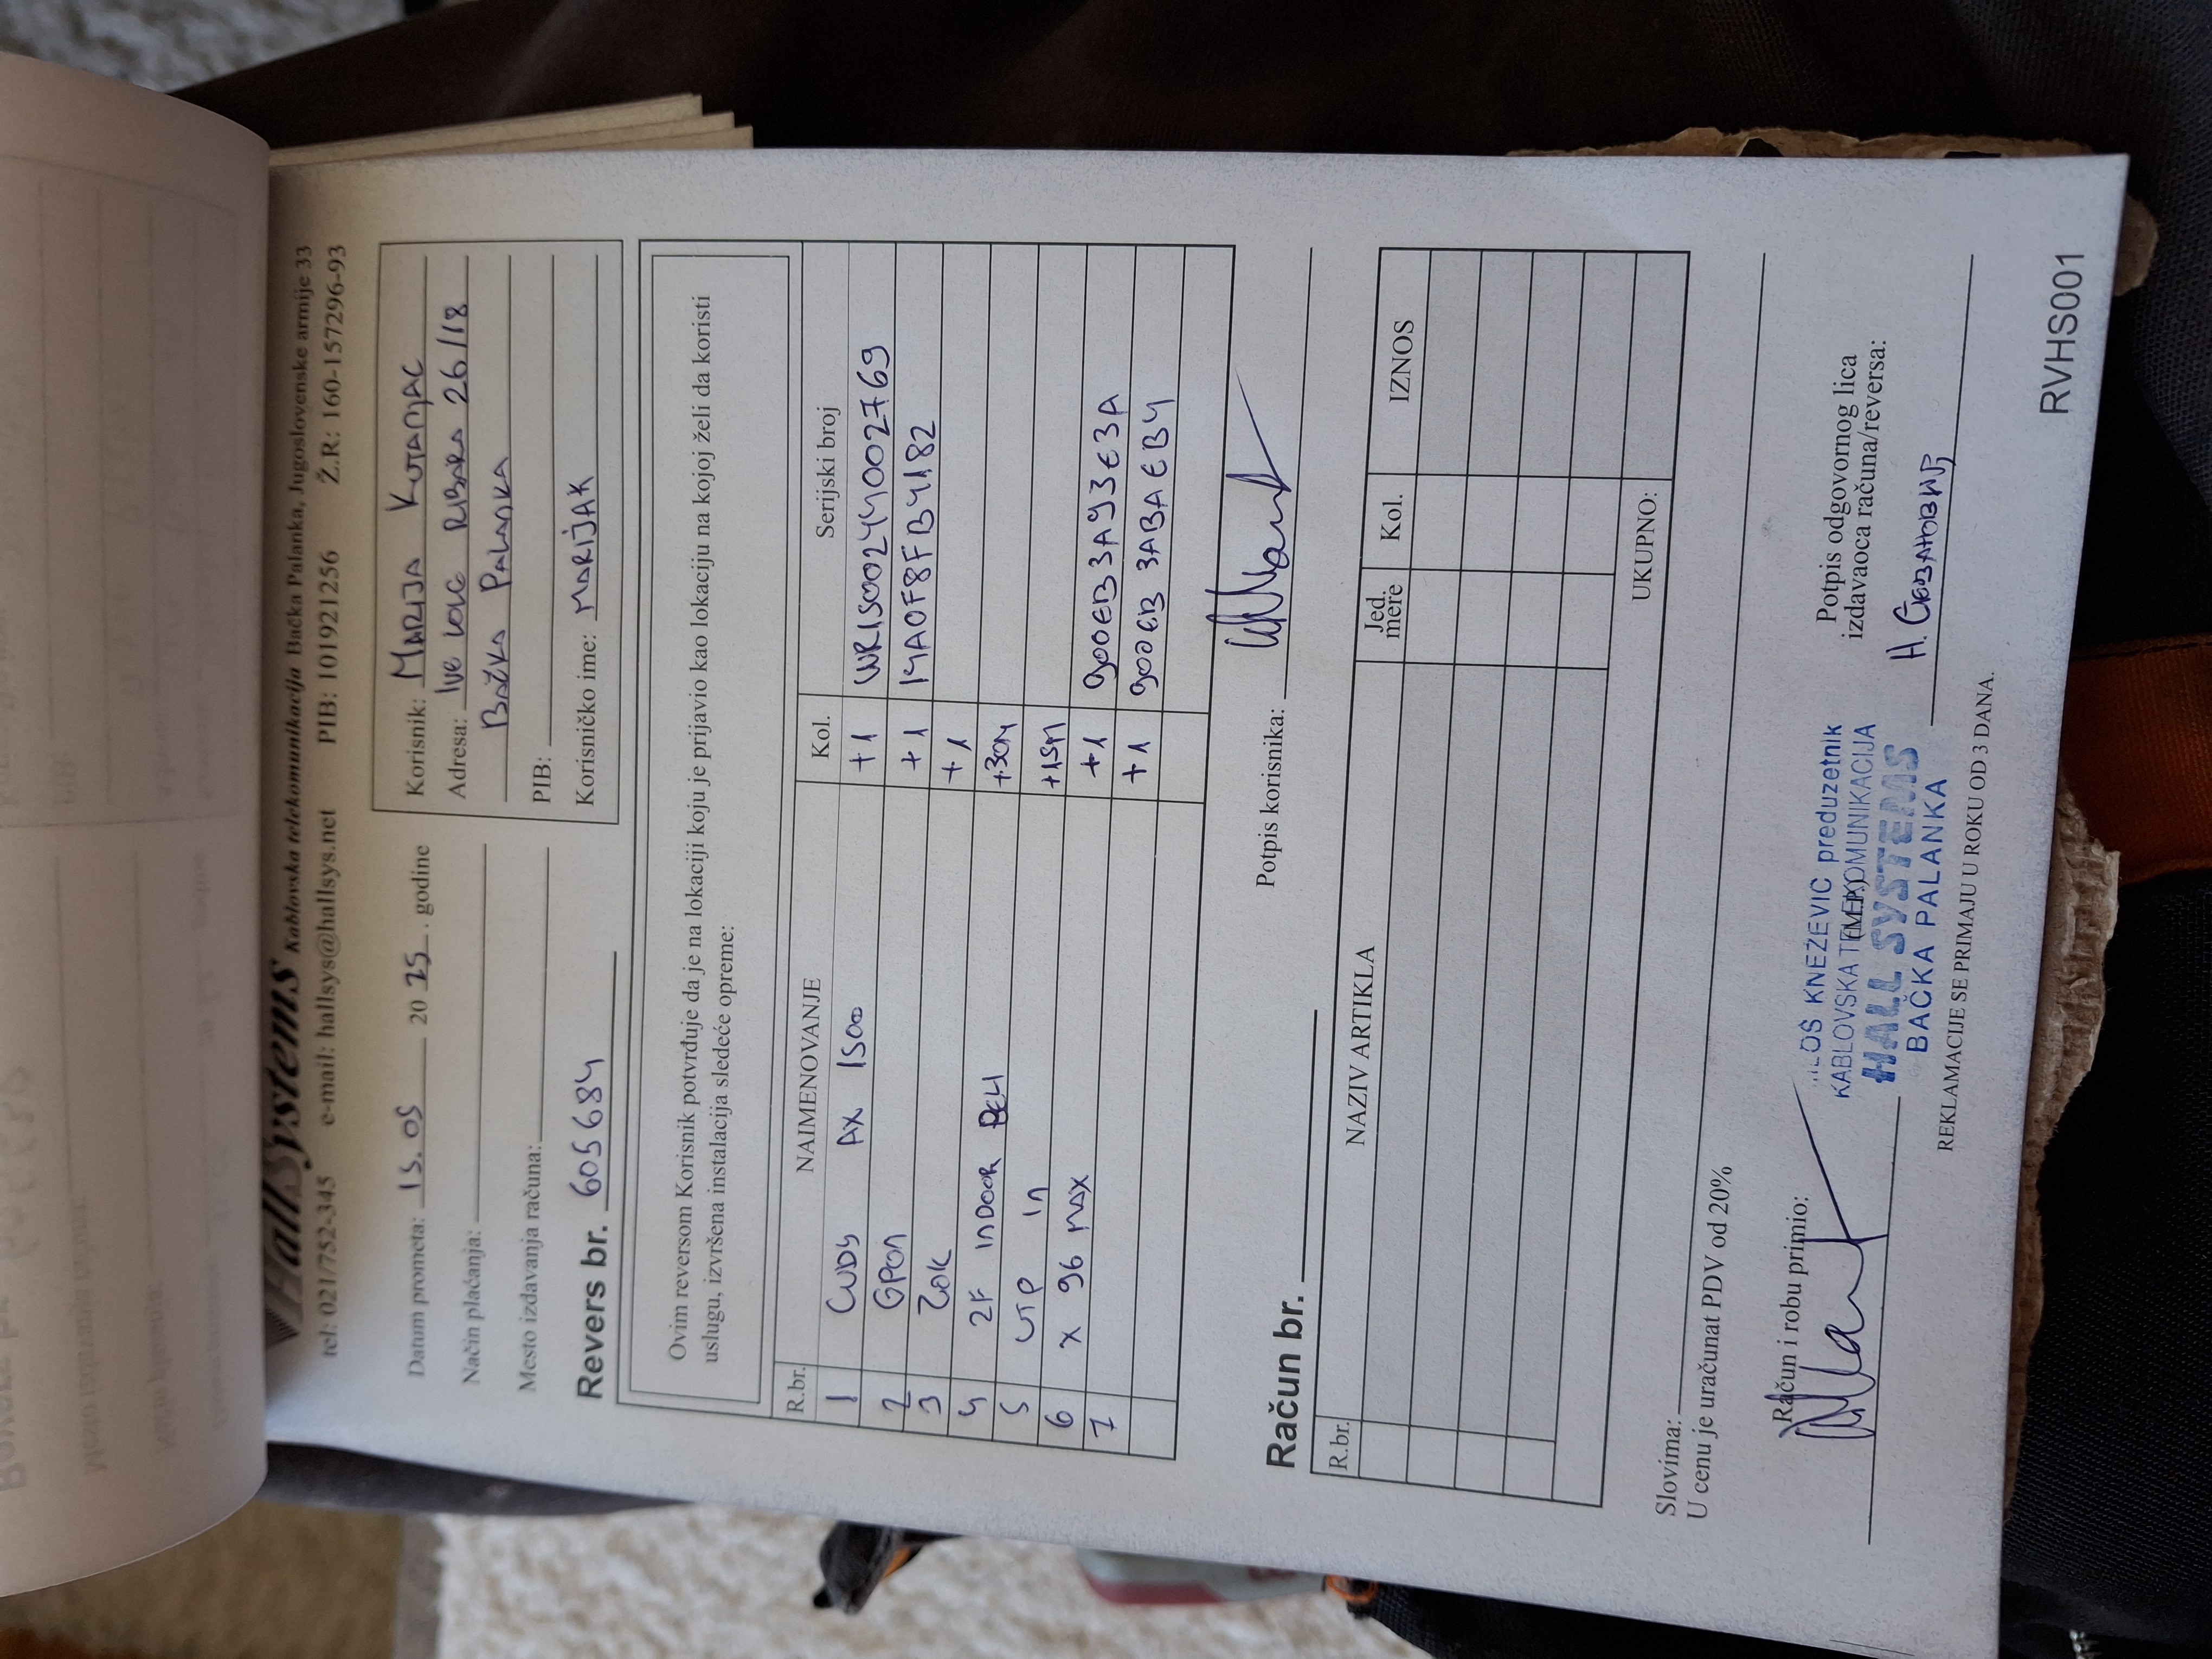 HallSystems Kablovska telekomunikacija Bačka Palanka, Jugoslovenske armije 33
tel: 021/752-345 e-mail: hallsys@hallsys.net PIB: 101921256 Ž.R: 160-157296-93
Datum prometa: 15.05 2025. godine
Način plaćanja:
Mesto izdavanja računa:
Revers br. 605684
Korisnik: MARIJA
Adresa: IVE LOLE RIBARA 26/18
BAČKA PALANKA
PIB:
Korisničko ime: MARIJAK
Ovim reversom Korisnik potvrđuje da je na lokaciji koju je prijavio kao lokaciju na kojoj želi da koristi
uslugu, izvršena instalacija sledeće opreme:
R.br. NAIMENOVANJE Kol. Serijski broj
1 CUDY AX 1500 +1 WR1500244002769
2 GPON +1 14A0F8FB4182
3 ZOK +1
4 2F INDOOR +30M
5 UTP IN +15M
6 X 96 MAX +1 900EB3A93E3A
7 +1 900EB3ABAEB4
Potpis korisnika:
Račun br.
R.br. NAZIV ARTIKLA Jed. mere Kol. IZNOS
UKUPNO:
Slovima:
U cenu je uračunat PDV od 20%
Račun i robu primio:
(M.P.)
MILOŠ KNEZEVIC preduzetnik
KABLOVSKA TELEKOMUNIKACIJA
HALL SYSTEMS
BAČKA PALANKA
Potpis odgovornog lica
izdavaoca računa/reversa:
REKLAMACIJE SE PRIMAJU U ROKU OD 3 DANA.
RVHS001